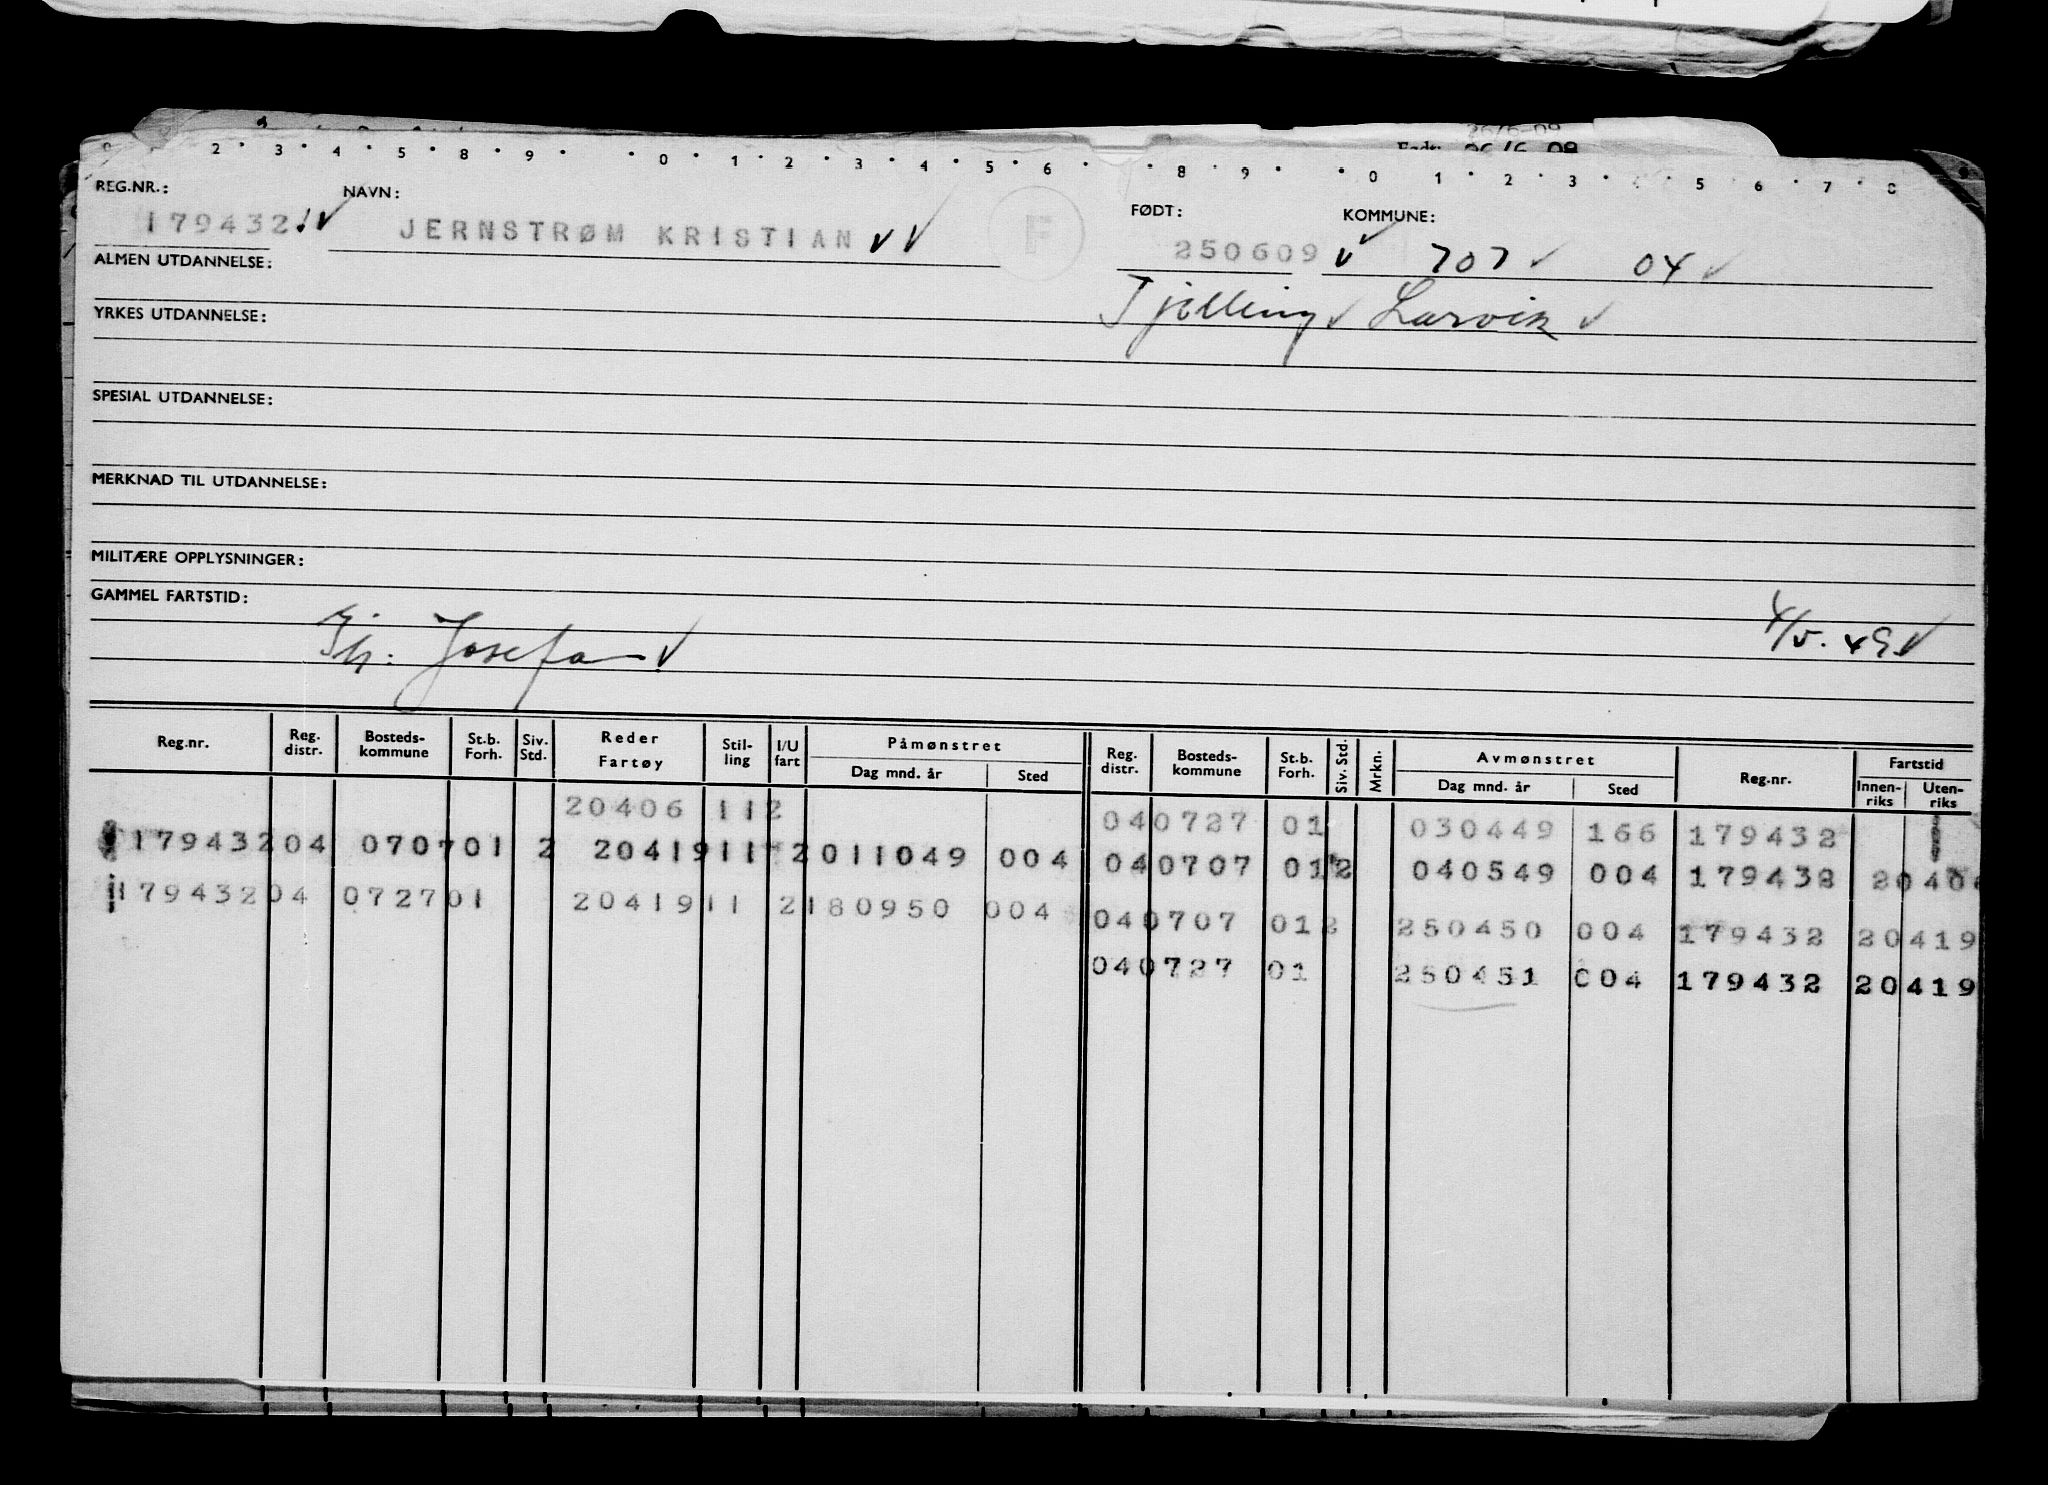 26/6-09
Født: 26/6 09
2 · 3 · 4 · 5 · 8 · 9 · · 0 · 1 · 2 · 3 · 4 · 5 · 6 · · 8 · 9 · · 0 · 1 · 2 · 3 · · 5 · 6 · 7 · 8
REG.NR.: NAVN: FØDT: KOMMUNE:
179432 JERNSTRØM KRISTIAN F 250609 707 04
ALMEN UTDANNELSE:
Tjølling Larvik
YRKES UTDANNELSE:
SPESIAL UTDANNELSE:
MERKNAD TIL UTDANNELSE:
MILITÆRE OPPLYSNINGER:
GAMMEL FARTSTID:
Josefa 4/5. 49
Reg.nr. Reg. distr. Bosteds-kommune St.b. Forh. Siv. Std. Reder Fartøy Stil-ling I/U fart Påmønstret Dag mnd. år Sted Reg. distr. Bosteds-kommune St.b. Forh. Siv. Std. Mrkn. Avmønstret Dag mnd. år Sted Reg.nr. Fartstid Innen-riks Uten-riks
20406 112 040727 01 030449 166 179432
179432 04 0707 01 2 20419 11 2 011049 004 040707 01 2 040549 004 179432 20406
179432 04 0727 01 20419 11 2 180950 004 040707 01 2 250450 004 179432 20419
040727 01 250451 004 179432 20419